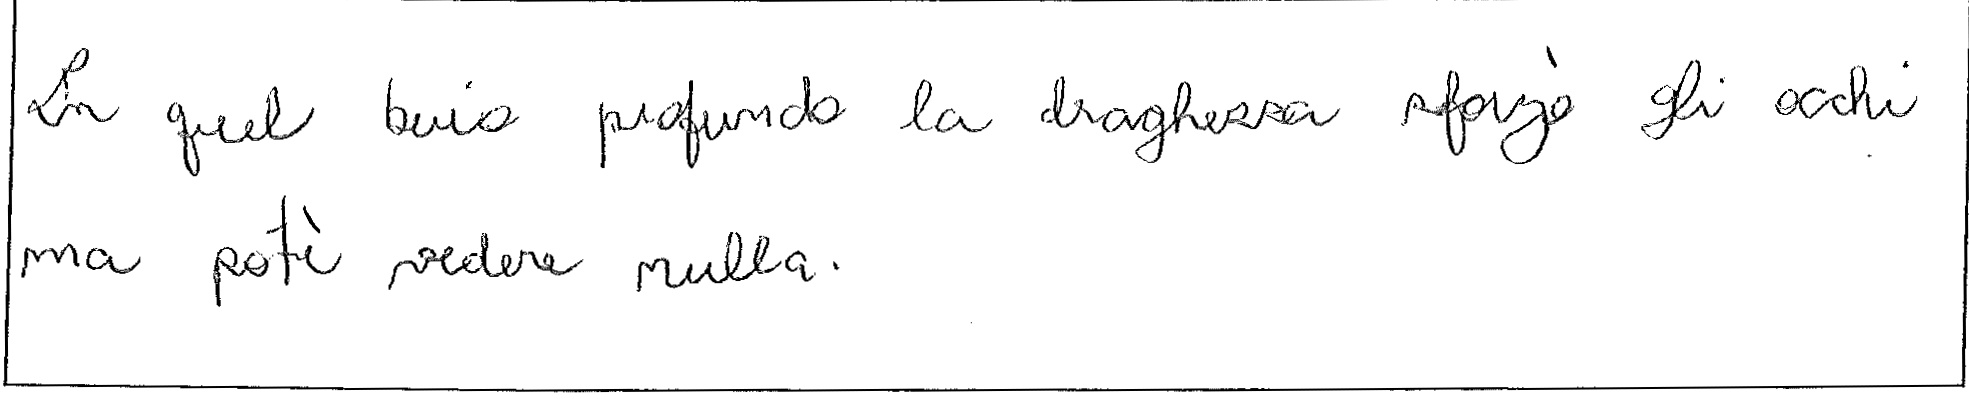 In quel buio profundo la draghessa sforzò gli occhi
ma potè vedere nulla.